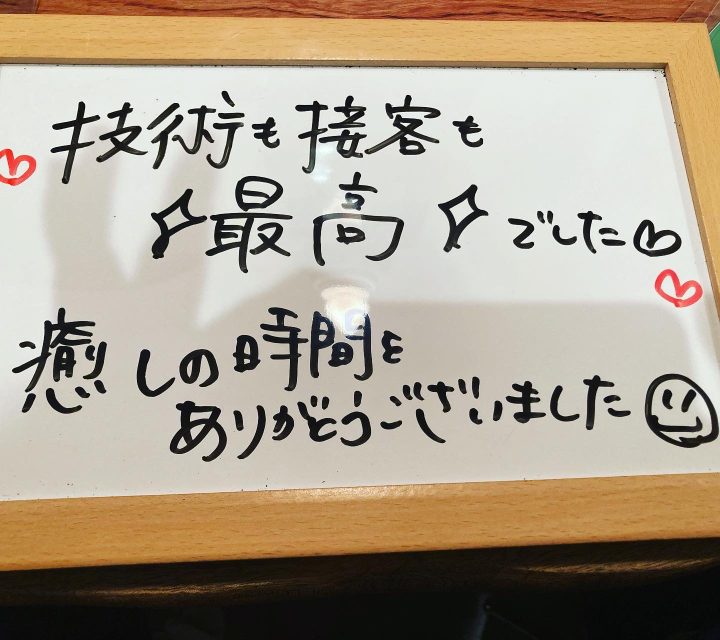 技術も接客も
最高でした
癒しの時間を
ありがとうございました